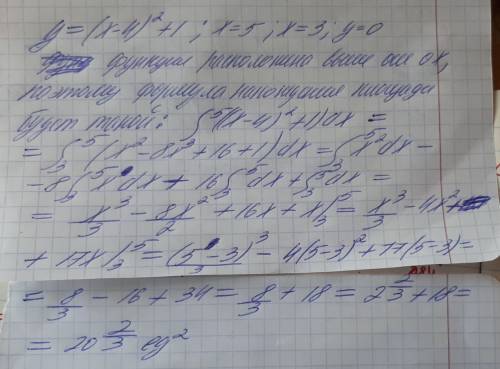 y = (x-4)² + 1 ; x = 5 ; x = 3 ; y = 0
функция расположена выше оси ox,
поэтому формула нахождения площади
будет такой: ∫₃⁵((x-4)²+1)dx =
= ∫₃⁵(x²-8x+16+1)dx = ∫₃⁵x²dx -
-8∫₃⁵x dx + 16∫₃⁵dx + ∫₃⁵dx =
= x³/3 - 8x²/2 + 16x + x|₃⁵ = x³/3 - 4x² +
+ 17x|₃⁵ = (5-3)³/3 - 4(5-3)² + 17(5-3) =
= 8/3 - 16 + 34 = 8/3 + 18 = 2 2/3 + 18 =
= 20 2/3 ед²